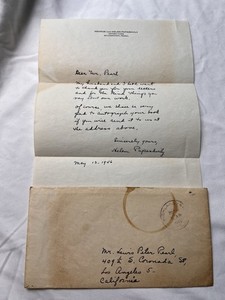 Dear Mr. Pearl
My husband and I both want
to thank you for your letters
and for the kind things you
say about our work.
Of course we shall be very
glad to autograph your book
if you will send it to us at
the address above.
Sincerely yours,
Helen
May 12, 1956
Mr. Lewis Peter Pearl
409 S. Coronado St,
Los Angeles 5.
California